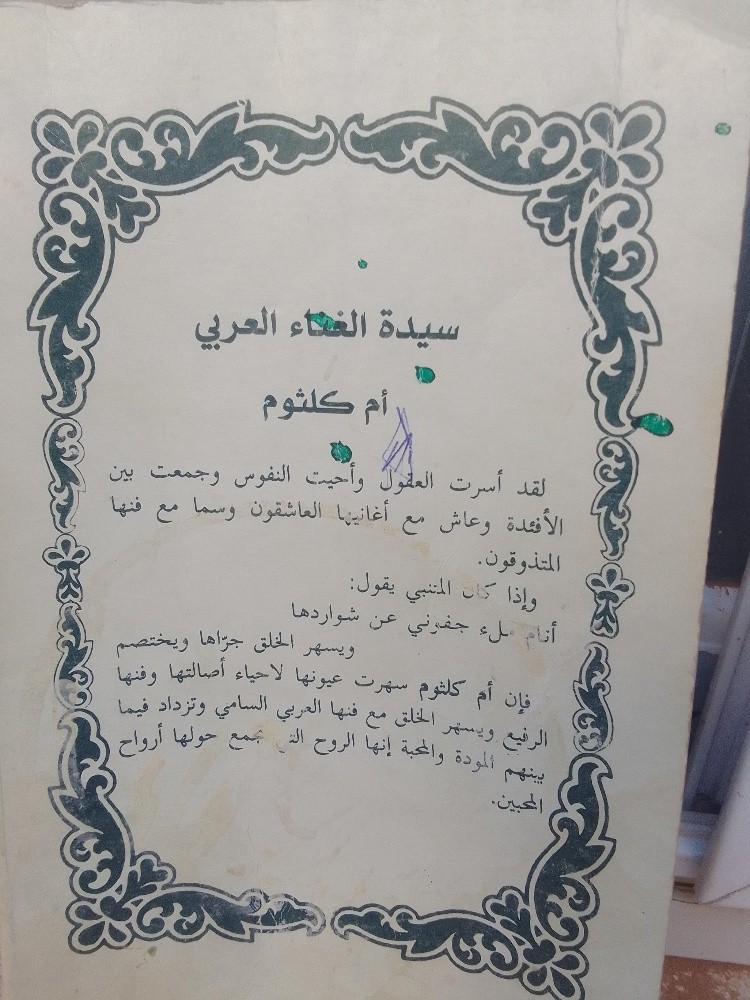 سيدة الغناء العربي
أم كلثوم
لقد أسرت العقول وأحيت النفوس وجمعت بين
الأفئدة وعاش مع أغانيها العاشقون وسما مع فنها
المتذوقون.
وإذا كان المتنبي يقول:
أنام ملء جفوني عن شواردها
ويسهر الخلق جرّاها ويختصم
فإن أم كلثوم سهرت عيونها لاحياء أصالتها وفنها
الرفيع ويسهر الخلق مع فنها العربي السامي وتزداد فيما
بينهم المودة والمحبة إنها الروح التي تجمع حولها أرواح
المحبين.